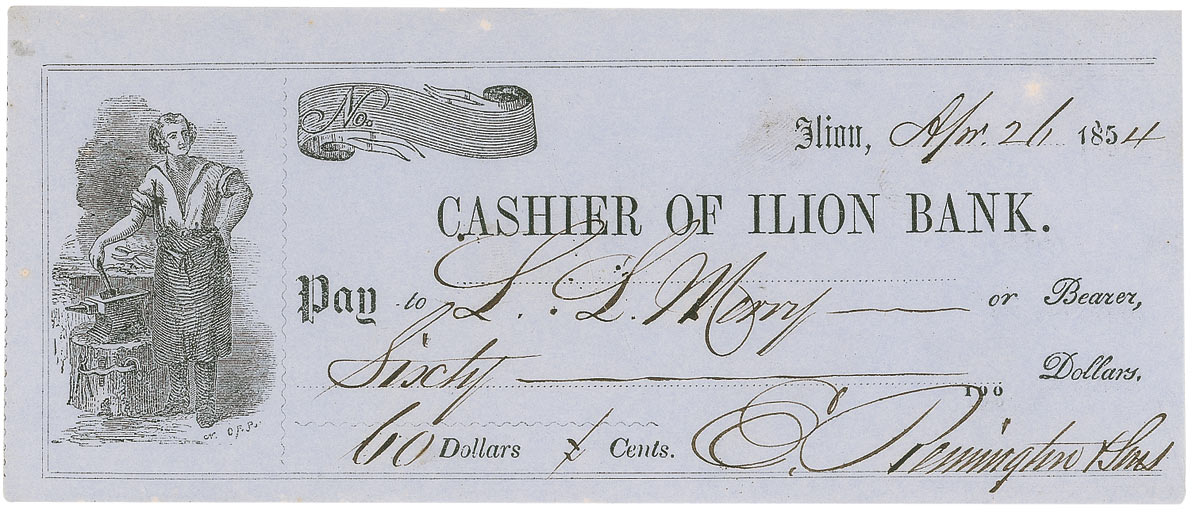 No.
Ilion, Apr. 21 1854
CASHIER OF ILION BANK.
Pay to L. L. Merry or Bearer,
Sixty 100 Dollars.
60 Dollars Cents. E. Remington & Sons